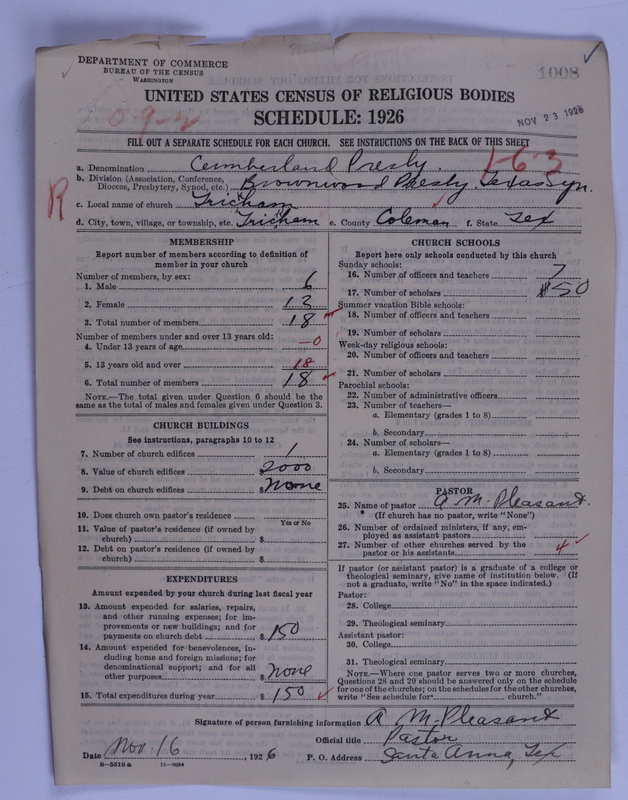 DEPARTMENT OF COMMERCE
BUREAU OF THE CENSUS
WASHINGTON
1008
UNITED STATES CENSUS OF RELIGIOUS BODIES
SCHEDULE: 1926
NOV 23 1926
09-2
FILL OUT A SEPARATE SCHEDULE FOR EACH CHURCH. SEE INSTRUCTIONS ON THE BACK OF THIS SHEET
1-63
R
a. Denomination Cumberland Presby.
b. Division (Association, Conference, Diocese, Presbytery, Synod, etc.) Brownwood Presby. Texas Syn.
c. Local name of church Tricham
d. City, town, village, or township, etc. Tricham e. County Coleman f. State Tex
MEMBERSHIP
Report number of members according to definition of
member in your church
Number of members, by sex:
1. Male 6
2. Female 12
3. Total number of members 18
Number of members under and over 13 years old:
4. Under 13 years of age —0
5. 13 years old and over 18
6. Total number of members 18
NOTE.—The total given under Question 6 should be the
same as the total of males and females given under Question 3.
CHURCH BUILDINGS
See instructions, paragraphs 10 to 12
7. Number of church edifices 1
8. Value of church edifices $2000
9. Debt on church edifices $None
10. Does church own pastor's residence
Yes or No
11. Value of pastor's residence (if owned by
church) $
12. Debt on pastor's residence (if owned by
church) $
EXPENDITURES
Amount expended by your church during last fiscal year
13. Amount expended for salaries, repairs,
and other running expenses; for im-
provements or new buildings; and for
payments on church debt $150
14. Amount expended for benevolences, in-
cluding home and foreign missions; for
denominational support; and for all
other purposes $None
15. Total expenditures during year $150
CHURCH SCHOOLS
Report here only schools conducted by this church
Sunday schools:
16. Number of officers and teachers 7
17. Number of scholars $50
Summer vacation Bible schools:
18. Number of officers and teachers
19. Number of scholars
Week-day religious schools:
20. Number of officers and teachers
21. Number of scholars
Parochial schools:
22. Number of administrative officers
23. Number of teachers—
a. Elementary (grades 1 to 8)
b. Secondary
24. Number of scholars—
a. Elementary (grades 1 to 8)
b. Secondary
PASTOR
25. Name of pastor A. M. Pleasant.
(If church has no pastor, write "None")
26. Number of ordained ministers, if any, em-
ployed as assistant pastors
27. Number of other churches served by the
pastor or his assistants 4
If pastor (or assistant pastor) is a graduate of a college or
theological seminary, give name of institution below. (If
not a graduate, write "No" in the space indicated.)
Pastor:
28. College
29. Theological seminary
Assistant pastor:
30. College
31. Theological seminary
NOTE.—Where one pastor serves two or more churches,
Questions 28 and 29 should be answered only on the schedule
for one of the churches; on the schedules for the other churches,
write "See schedule for church."
Signature of person furnishing information A. M. Pleasant
Official title Pastor
Date Nov. 16, 1926 P. O. Address Santa Anna, Tex
8-5518 a 11-9054